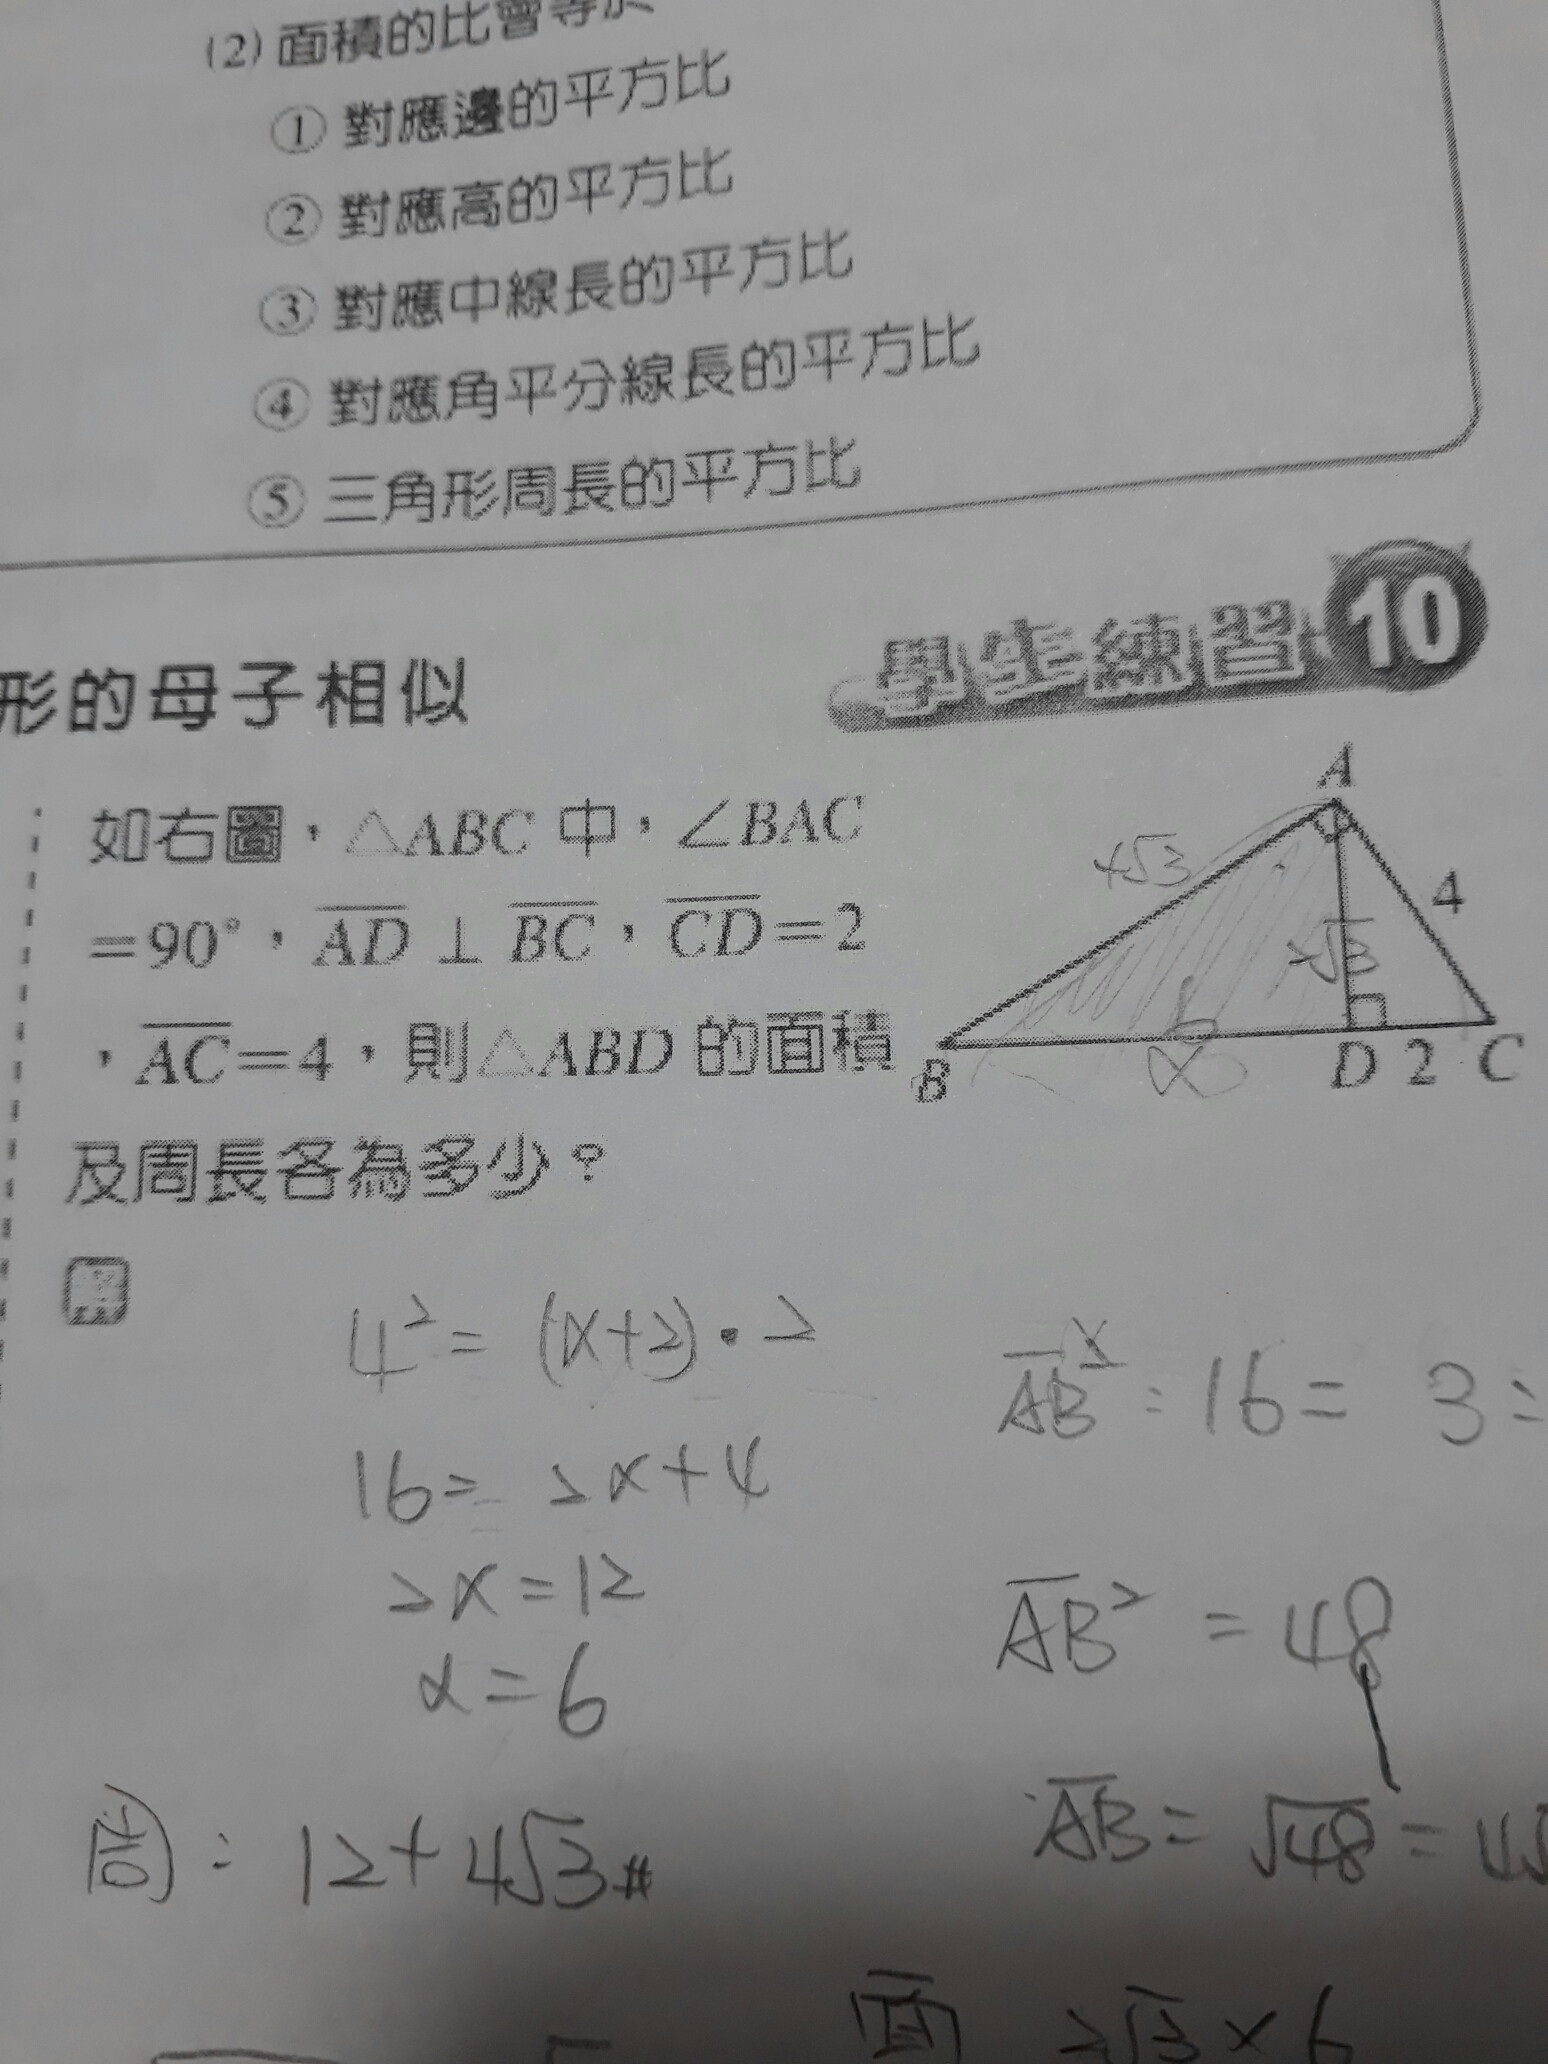 (2) 面積的比會等於
① 對應邊的平方比
② 對應高的平方比
③ 對應中線長的平方比
④ 對應角平分線長的平方比
⑤ 三角形周長的平方比
學生練習 10
形的母子相似
如右圖，△ABC 中，∠BAC
=90°，AD ⊥ BC，CD=2
，AC=4，則△ABD 的面積
及周長各為多少？
A
4√3
4
2√3
6
x
B
D 2 C
解
4² = (x+2)・2
16 = 2x+4
2x = 12
x = 6
周: 12+4√3#
AB² : 16 = 3 :
AB² = 48
AB = √48 = 4√
面 2√3 × 6